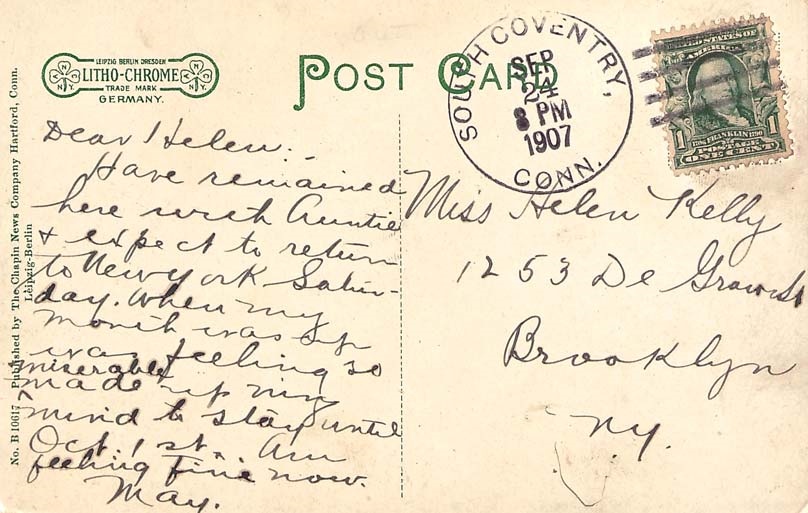 LEIPZIG BERLIN DRESDEN
LITHO-CHROME
N N
N.Y. N.Y.
TRADE MARK
GERMANY.
POST CARD
SOUTH COVENTRY,
SEP
24
8 PM
1907
CONN.
UNITED STATES OF
AMERICA
1 1
FRANKLIN
POSTAGE
ONE CENT
No. B 10617 Published by The Chapin News Company Hartford, Conn.
Leipzig-Berlin
Dear Helen:
Have remained
here with Auntie
& expect to return
to New York Satur-
day. When my
month was up
was feeling so
miserable
made up my
mind to stay until
Oct. 1st. Am
feeling fine now.
May.
Miss Helen Kelly
1253 De Graw St
Brooklyn
N.Y.